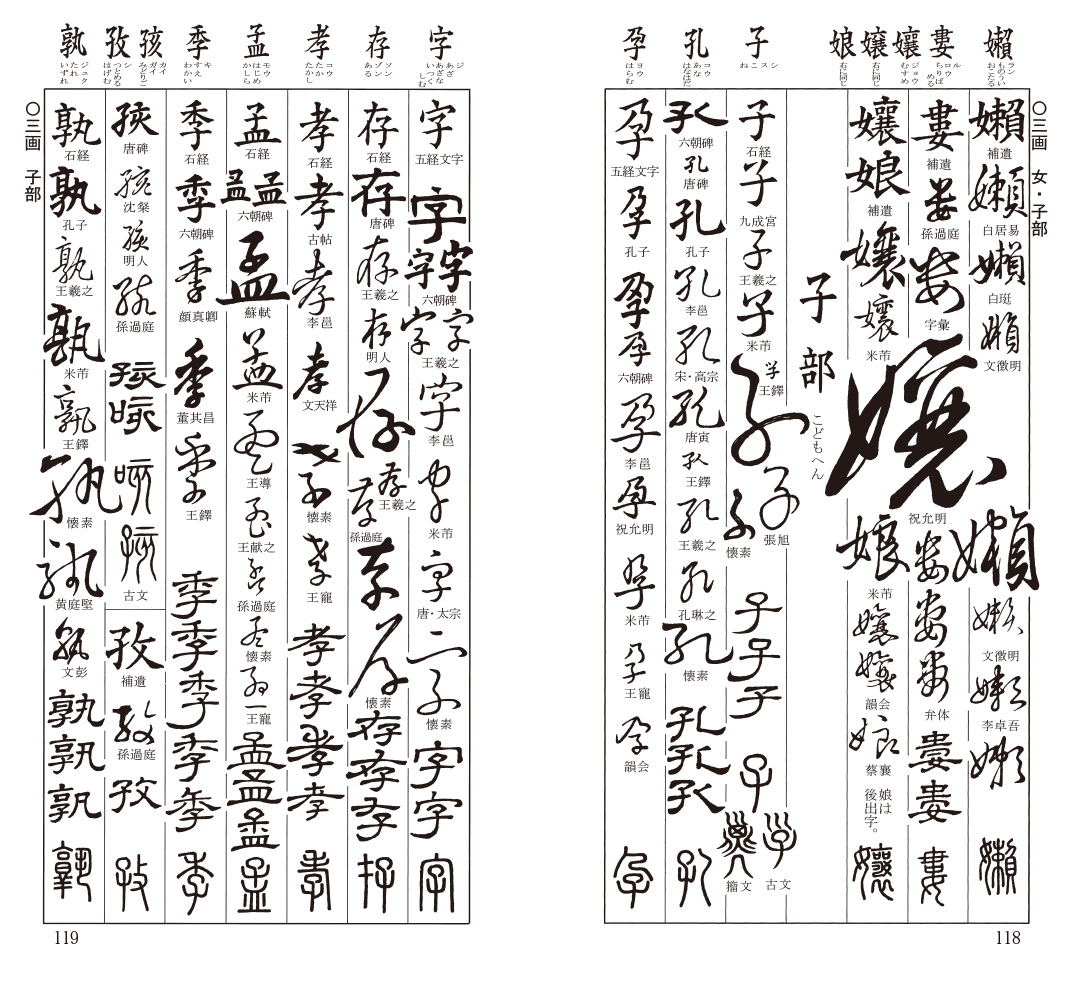 嬾 ラン ものうい おこたる
婁 ル ロウ ちりばめる
孃 ジョウ むすめ
嬢 右に同じ
娘 右に同じ
子 シ ス こ ね
孔 コウ あな はなはだ
孕 ヨウ はらむ
〇三画 女・子部
嬾 補遺
嬾 白居易
嬾 白珽
嬾 文徴明
嬾
嬾 文徴明
嬾 李卓吾
嬾
嬾
婁 補遺
婁 孫過庭
婁 字彙
婁
婁
婁 弁体
婁
婁
婁
孃
娘 補遺
孃
孃 米芾
孃 祝允明
娘 米芾
孃
孃 韻会
娘 蔡襄
娘は後出字。
孃
子部 こどもへん
子 石経
子 九成宮
子 王羲之
子 米芾
子 王鐸
子
子 張旭
子 懐素
子
子
子
子
子 古文
籀文
孔 六朝碑
孔 唐碑
孔 孔子
孔 李邕
孔 宋・高宗
孔 唐寅
孔 王鐸
孔 王羲之
孔 孔琳之
孔 懐素
孔
孔
孔
孔
孕 五経文字
孕 孔子
孕
孕 六朝碑
孕 李邕
孕 祝允明
孕 米芾
孕 王寵
孕 韻会
孕
118
字 ジ あざ あざな いつくしむ
存 ソン ゾン ある
孝 コウ たかし
孟 モウ はじめ かしら
季 キ すえ わかい
孩 カイ ガイ みどりご
孜 シ つとめる はげむ
孰 ジュク たれ いずれ
〇三画 子部
字 五経文字
字
字字 六朝碑
字字 王羲之
字 李邕
字 米芾
字 唐・太宗
字 懐素
字
字
字
存 石経
存 唐碑
存 王羲之
存 明人
存
存 王羲之
存 孫過庭
存
存 懐素
存
存
存
存
孝 石経
孝 古帖
孝 李邕
孝 文天祥
孝 懐素
孝 王寵
孝
孝
孝
孝
孝
孟 石経
孟孟 六朝碑
孟 蘇軾
孟 米芾
孟 王導
孟 王献之
孟 孫過庭
孟 懐素
孟 王寵
孟
孟
孟
孟
季 石経
季 六朝碑
季 顔真卿
季 董其昌
季 王鐸
季
季
季
季
季
季
孩 唐碑
孩 沈粲
孩 明人
孩 孫過庭
孩
咳
咳
孩 古文
孜 補遺
孜 孫過庭
孜
孜
孰 石経
孰 孔子
孰 王羲之
孰 米芾
孰 王鐸
孰 懐素
孰 黄庭堅
孰 文彭
孰
孰
孰
孰
119